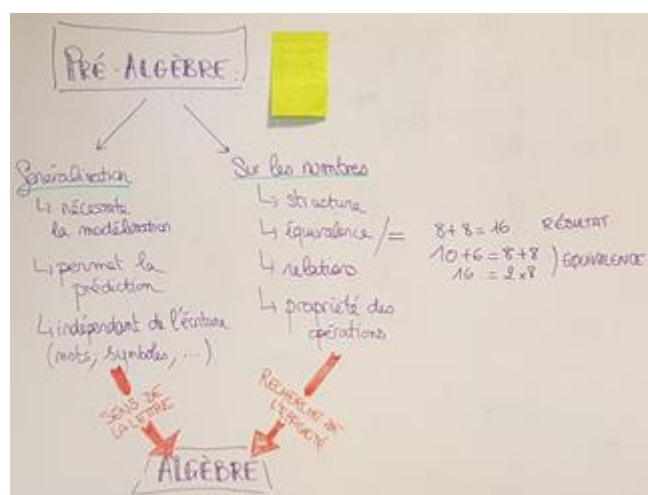 PRÉ-ALGÈBRE
Généralisation
↳ nécessite
la modélisation
↳ permet la
prédiction
↳ indépendant de l'écriture
(mots, symboles, ...)
Sur les nombres
↳ structure
↳ équivalence / =
↳ relations
↳ propriété des
opérations
8 + 8 = 16 RÉSULTAT
10 + 6 = 8 + 8
16 = 2 x 8
) EQUIVALENCE
SENS DE
LA LETTRE
DE
ALGÈBRE